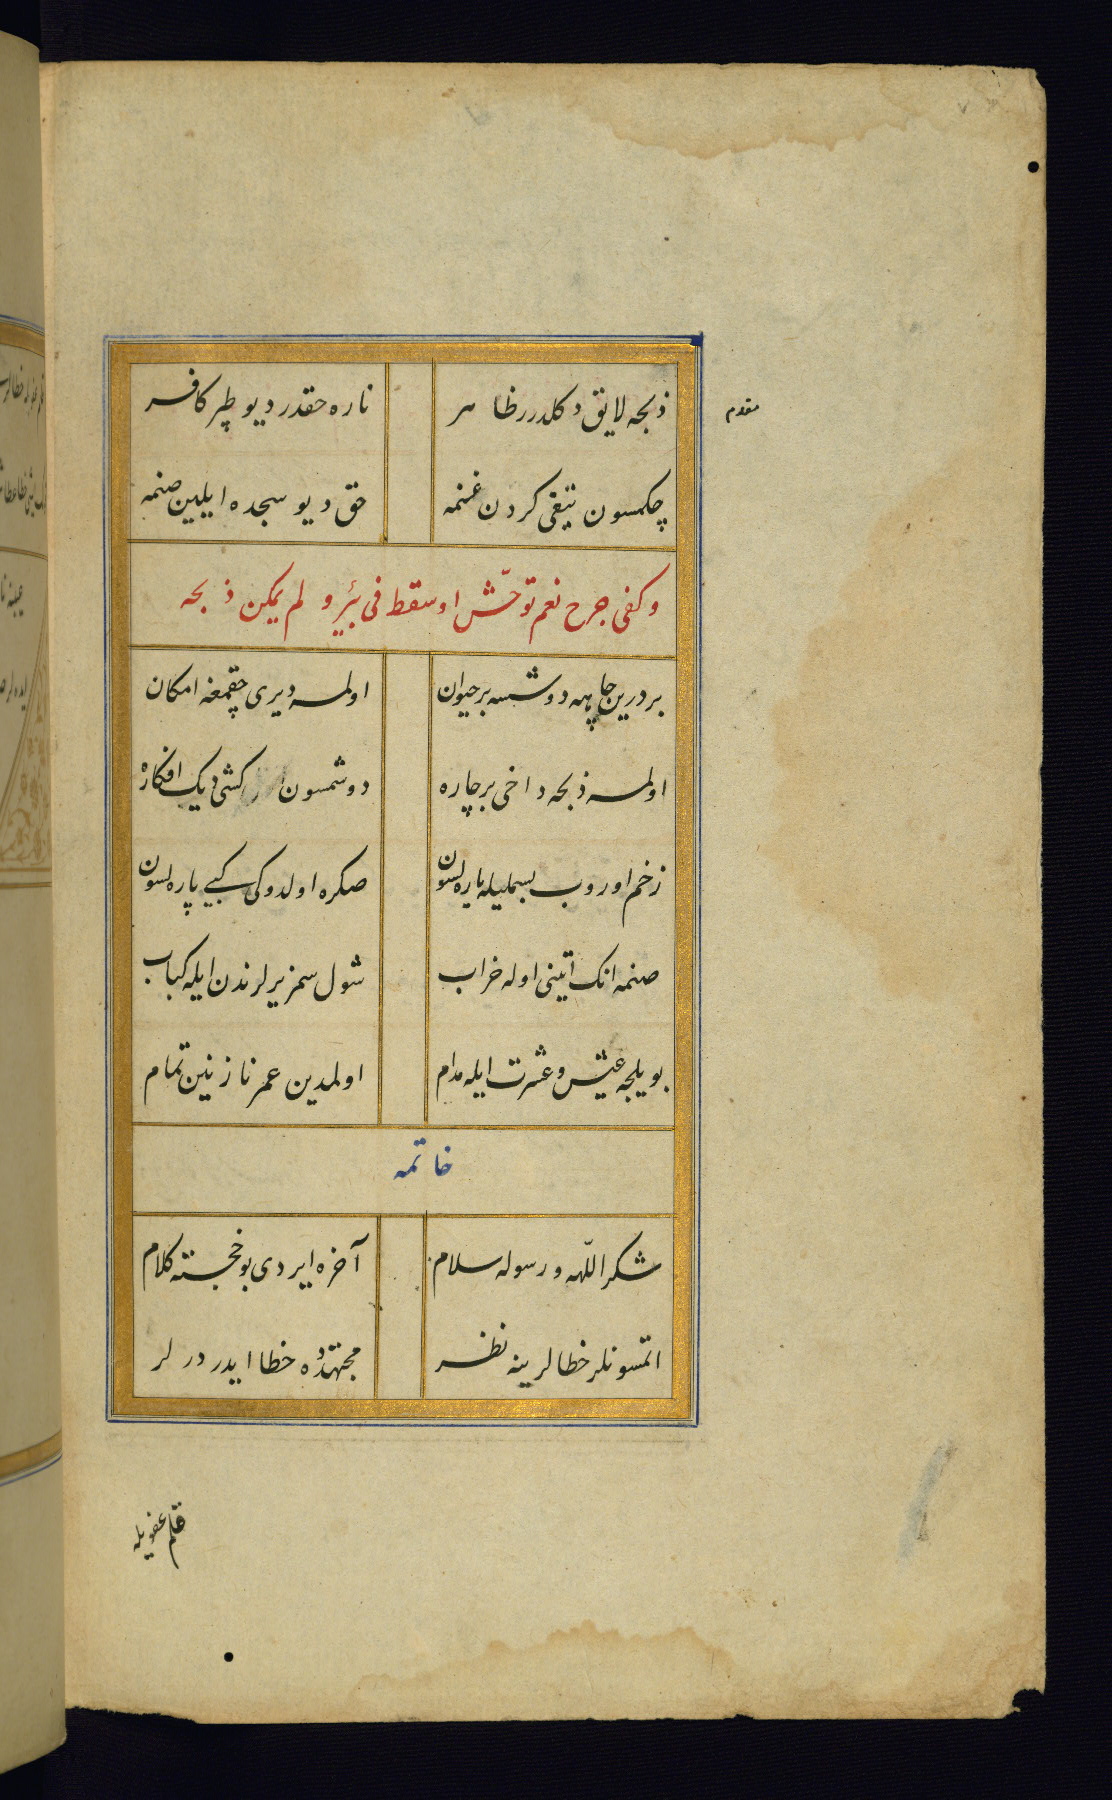 ذبجه لایق دکلدرر ظاهر ناره حقدر دیو طپر کافر
مقدم
چکمسون تیغی کردن غنمه حق دیو سجده ایلیین صنمه
وکفی جرح نعم توحّش او سقط فی بئر و لم یمکن ذبحه
بر درین چاهه دوشسه بر حیوان اولمسه دیری چقمغه امکان
اولمسه ذبحه داخی بر چاره دوشمسون کشی دیک افکاره
زخم اوروب بسملیله یاره لسون صکره اولدوکی کبی پاره لسون
صنمه انک اتینی اوله خراب شول سمز یرلرندن ایله کباب
بویلجه عیش و عشرت ایله مدام اولمدین عمر نازنین تمام
خاتمه
شکر اللّهه و رسوله سلام آخره ایردی بو خجسته کلام
اتمسونلر خطالرینه نظر مجتهدده خطا ایدر درلر
قلم عفویله